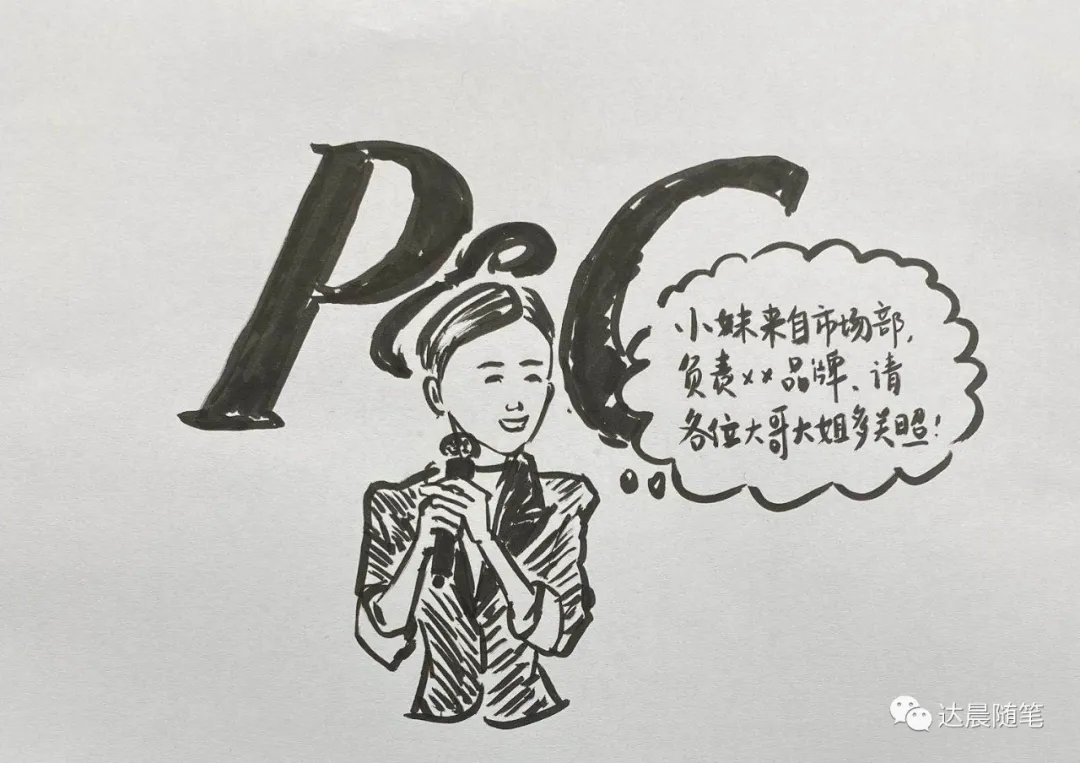 P&G
小妹来自市场部,
负责××品牌、请
各位大哥大姐多关照!
达晨随笔